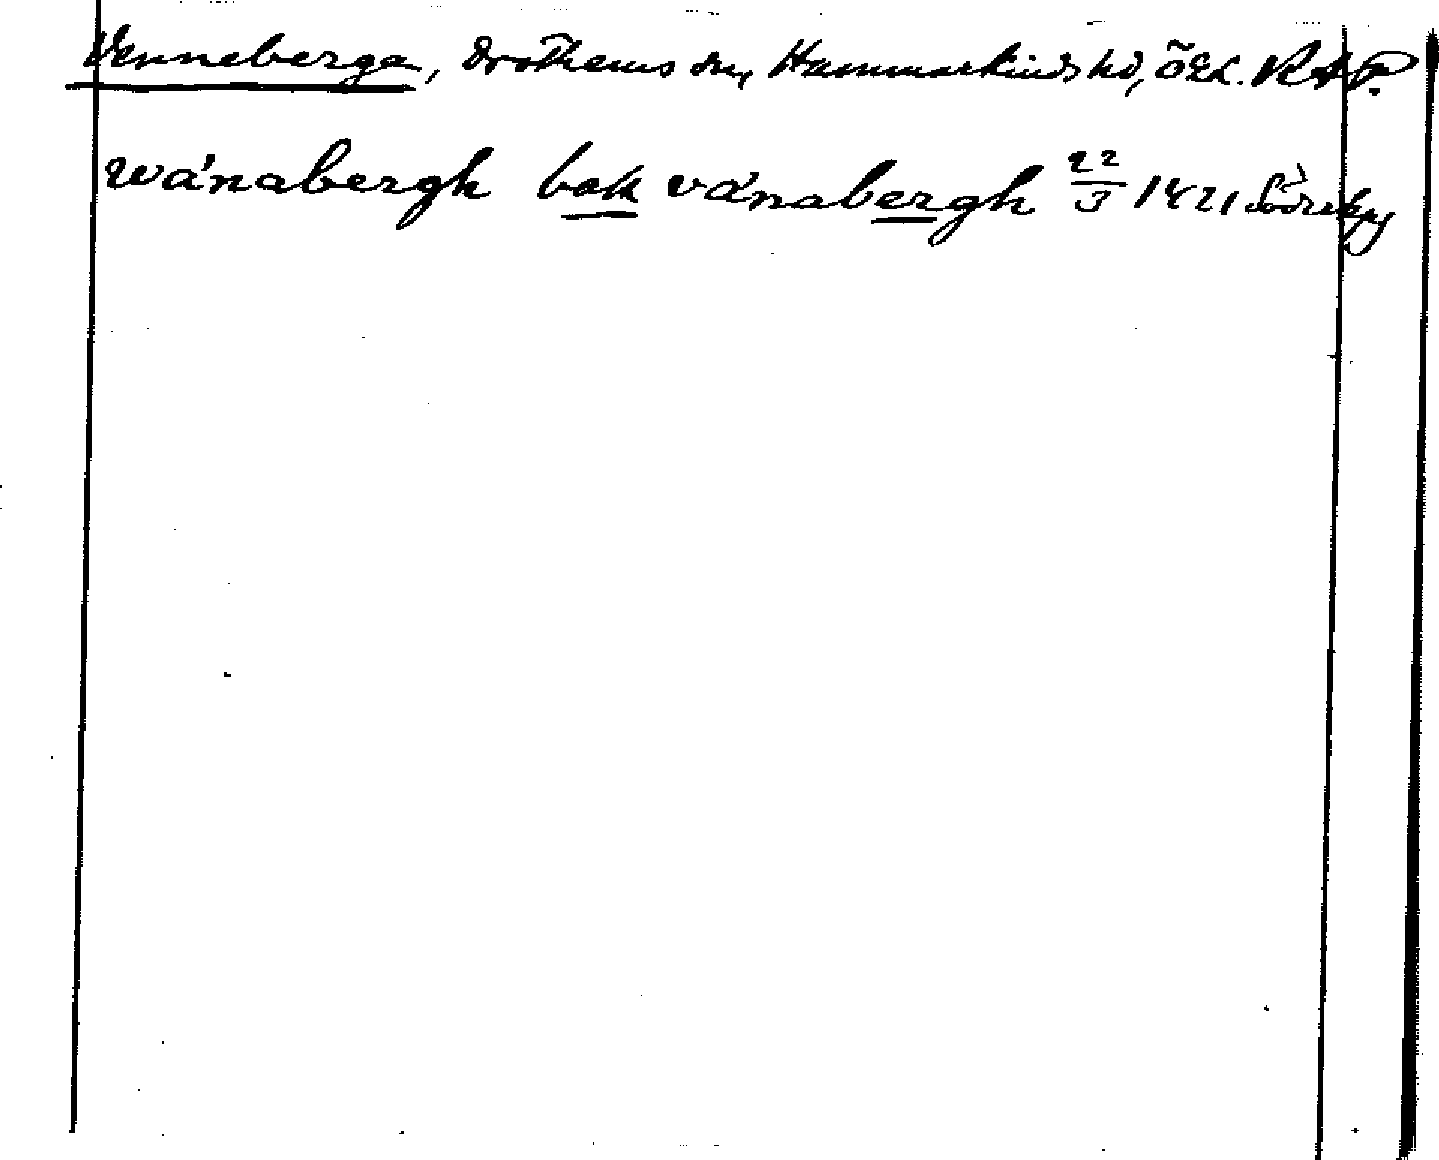 Venneberga, Drothems sn, Hammarkinds hd, Ögl. RAP.
wánabergh bak vánabergh 22/3 1421 Söderkpg